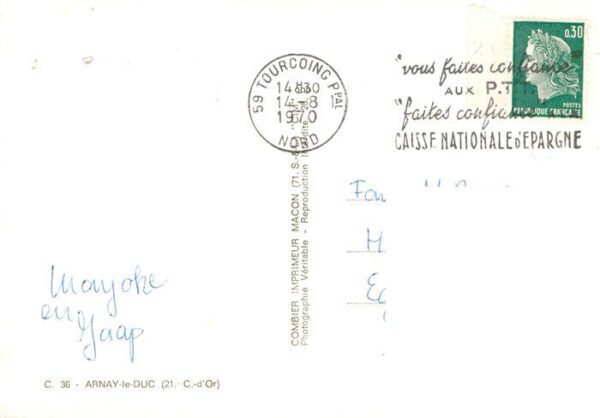 59 TOURCOING Ppal
14H30
14-8
1970
NORD
"vous faites confiance"
AUX P.T.T.
"faites confiance"
CAISSE NATIONALE D'EPARGNE
0,30
POSTES
REPUBLIQUE FRANÇAISE
COMBIER IMPRIMEUR MACON (71. S.-
Photographie Véritable - Reproduction Interdite
Fa
H
Marjoke
en
Jaap
C. 36 - ARNAY-le-DUC (21. C.-d'Or)